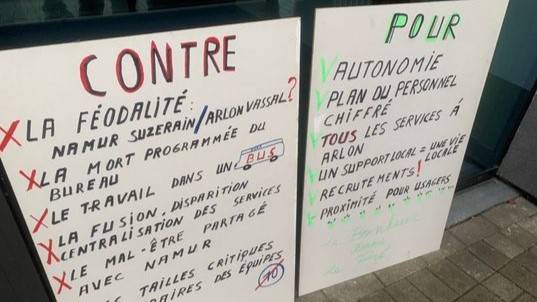 CONTRE
X LA FÉODALITÉ :
NAMUR SUZERAIN / ARLON VASSAL ?
X LA MORT PROGRAMMÉE DU
BUREAU
X LE TRAVAIL DANS UN BUS
X LA FUSION, DISPARITION
CENTRALISATION DES SERVICES
X LE MAL-ÊTRE PARTAGÉ
AVEC NAMUR
TAILLES CRITIQUES
DES ÉQUIPES 10
POUR
V AUTONOMIE
V PLAN DU PERSONNEL
CHIFFRÉ
V TOUS LES SERVICES À
ARLON
V UN SUPPORT LOCAL = UNE VIE
LOCALE
V RECRUTEMENTS !
V PROXIMITÉ POUR USAGERS